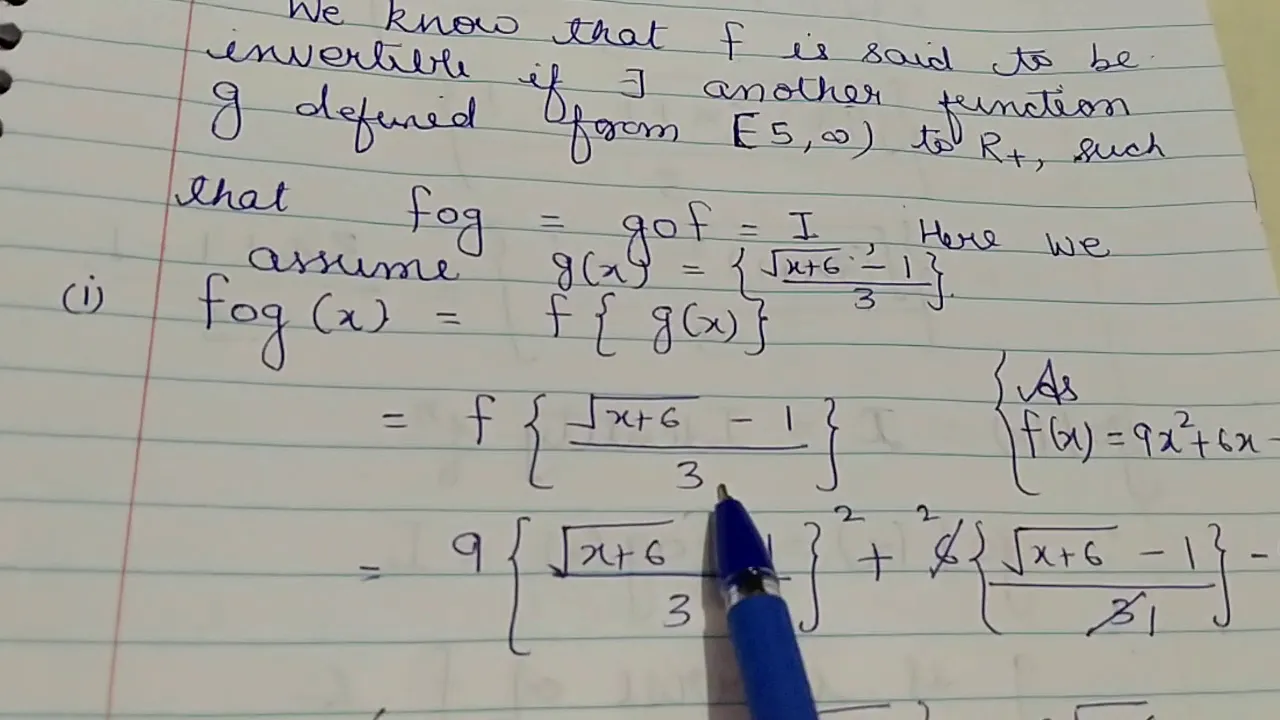 We know that f is said to be
invertible if ∃ another function
g defined from [5, ∞) to R₊, such
that fog = gof = I, Here we
assume g(x) = {(√(x+6) - 1)/3}.
(i) fog(x) = f{g(x)}
= f{(√(x+6) - 1)/3} {As
f(x) = 9x² + 6x -
= 9{(√(x+6) 1)/3}² + ²6{(√(x+6) - 1)/3 1} -